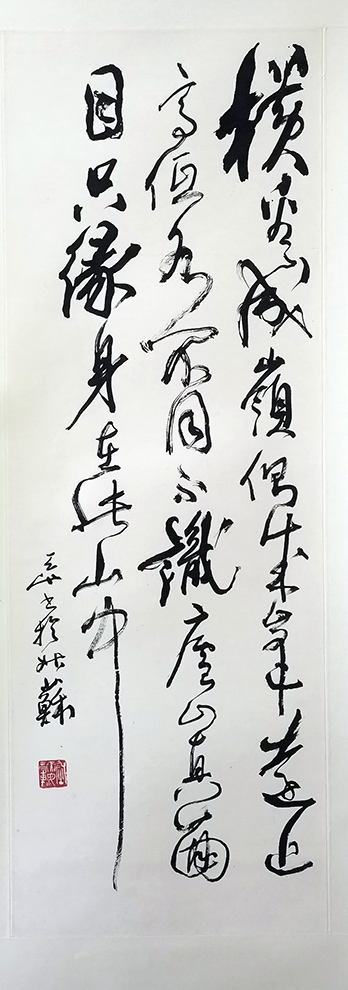 横看成嶺側成峯遠近
高低各不同不識廬山真面
目只緣身在此山中
書於姑蘇